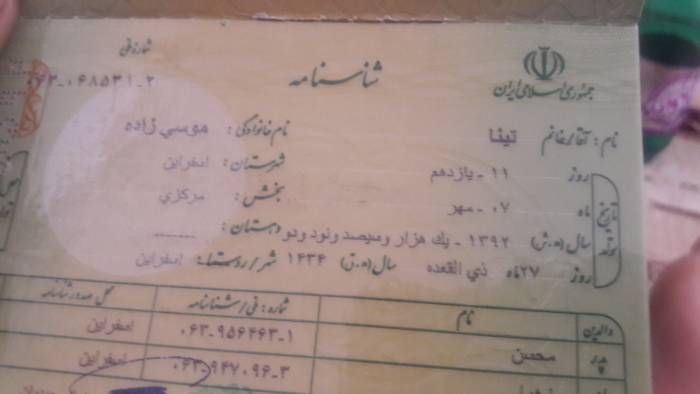 جمهوری اسلامی ایران
شناسنامه
شماره ملی
۰۶۳-۰۶۸۵۳۱-۲
نام: آقا/خانم تینا
نام خانوادگی: موسی زاده
تاریخ تولد
روز ۱۱ - یازدهم
شهرستان: اسفراین
ماه ۰۷ - مهر
بخش: مرکزی
سال (ه.ش) ۱۳۹۲ - یك هزار وسیصد ونود ودو
دهستان: ـــــ
روز ۲۷ ماه ذي القعده سال (ه.ق) ۱۴۳۴
شهر/روستا: اسفراین
والدین
نام
شماره: ملی/شناسنامه
محل صدور شناسنامه
پدر
محسن
۰۶۳-۹۵۶۴۶۳-۱
اسفراین
۰۶۳-۹۴۷۰۹۶-۳
اسفراین